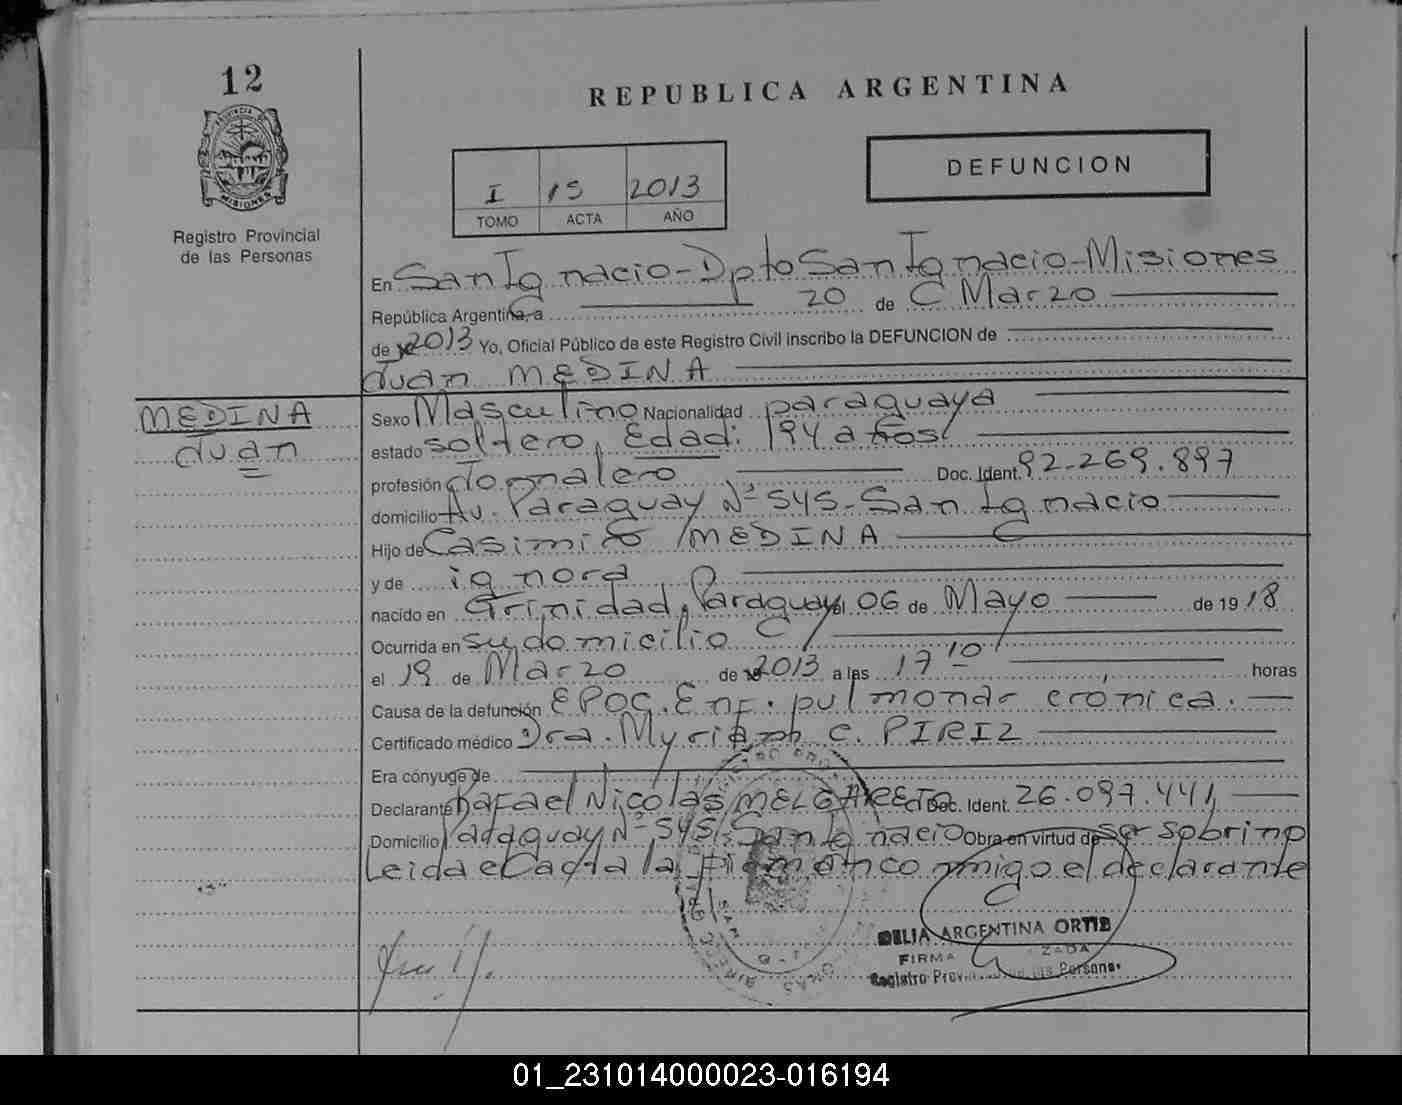 12
REPUBLICA ARGENTINA
DEFUNCION
I 15 2013
TOMO ACTA AÑO
MISIONES
Registro Provincial
de las Personas
En San Ignacio - Dpto San Ignacio - Misiones
República Argentina, a 20 de Marzo
de 2013 Yo, Oficial Público de este Registro Civil inscribo la DEFUNCION de
Juan MEDINA
MEDINA
Juan
Sexo Masculino Nacionalidad paraguaya
estado soltero, Edad: 94 años
profesión Jornalero Doc. Ident. 92-269.897
domicilio Av. Paraguay Nº 545 - San Ignacio
Hijo de Casimiro MEDINA
y de ignora
nacido en Trinidad, Paraguay el 06 de Mayo de 1918
Ocurrida en su domicilio
el 19 de Marzo de 2013 a las 17 10 horas
Causa de la defunción EPOC. Enf. pulmonar crónica.
Certificado médico Dra. Myriam C. PIRIZ
Era cónyuge de
Declarante Rafael Nicolás MELGAREJO Doc. Ident. 26.097.441
Domicilio Paraguay Nº 545 San Ignacio Obra en virtud de ser sobrino
Leida el Acta la firman conmigo el declarante
DELIA ARGENTINA ORTIZ
FIRMA ZADA
Registro Prov. de las Personas
01_231014000023-016194